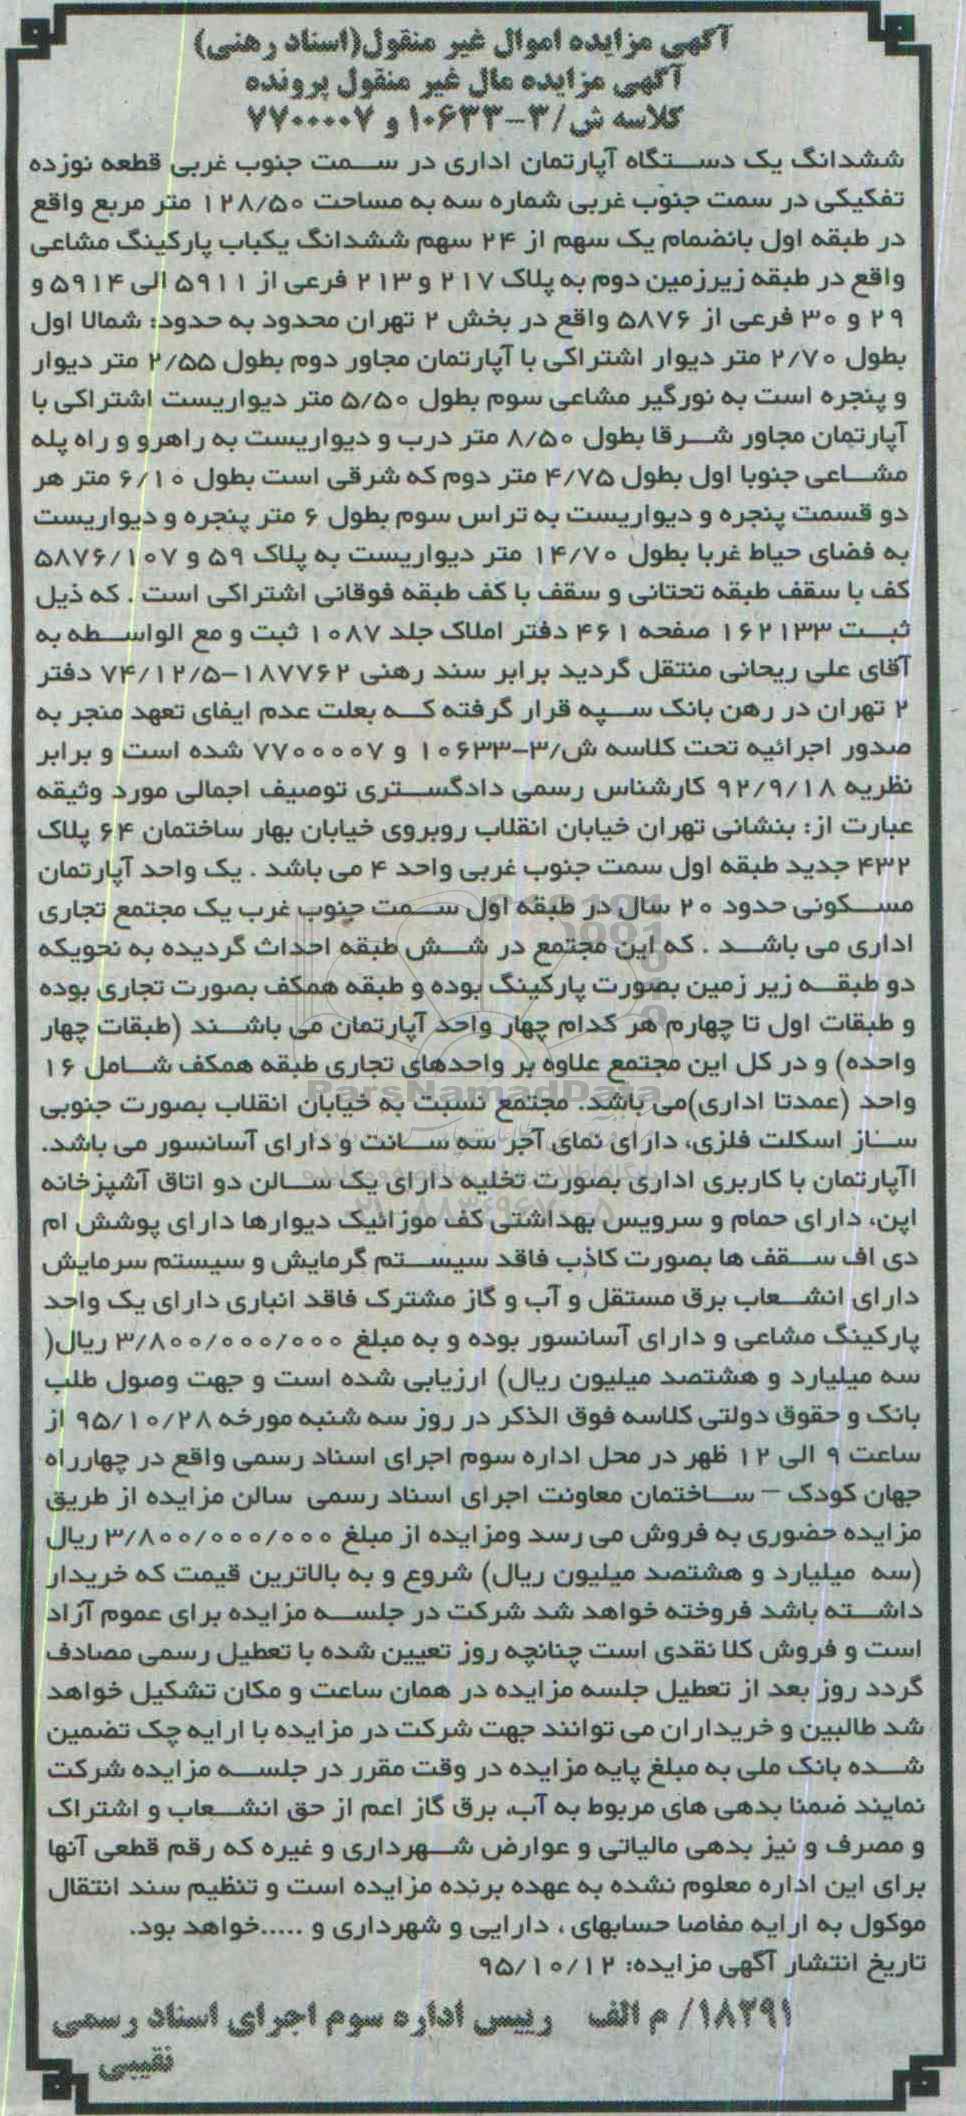 آگهی مزایده اموال غیر منقول(اسناد رهنی)
آگهی مزایده مال غیر منقول پرونده
کلاسه ش/۳-۱۰۶۳۳ و ۷۷۰۰۰۰۷
ششدانگ یک دستگاه آپارتمان اداری در سمت جنوب غربی قطعه نوزده
تفکیکی در سمت جنوب غربی شماره سه به مساحت ۱۲۸/۵۰ متر مربع واقع
در طبقه اول بانضمام یک سهم از ۲۴ سهم ششدانگ یکباب پارکینگ مشاعی
واقع در طبقه زیرزمین دوم به پلاک ۲۱۷ و ۲۱۳ فرعی از ۵۹۱۱ الی ۵۹۱۴ و
۲۹ و ۳۰ فرعی از ۵۸۷۶ واقع در بخش ۲ تهران محدود به حدود: شمالا اول
بطول ۲/۷۰ متر دیوار اشتراکی با آپارتمان مجاور دوم بطول ۲/۵۵ متر دیوار
و پنجره است به نورگیر مشاعی سوم بطول ۵/۵۰ متر دیواریست اشتراکی با
آپارتمان مجاور شرقا بطول ۸/۵۰ متر درب و دیواریست به راهرو و راه پله
مشاعی جنوبا اول بطول ۴/۷۵ متر دوم که شرقی است بطول ۶/۱۰ متر هر
دو قسمت پنجره و دیواریست به تراس سوم بطول ۶ متر پنجره و دیواریست
به فضای حیاط غربا بطول ۱۴/۷۰ متر دیواریست به پلاک ۵۹ و ۵۸۷۶/۱۰۷
کف با سقف طبقه تحتانی و سقف با کف طبقه فوقانی اشتراکی است . که ذیل
ثبت ۱۶۲۱۳۳ صفحه ۴۶۱ دفتر املاک جلد ۱۰۸۷ ثبت و مع الواسطه به
آقای علی ریحانی منتقل گردید برابر سند رهنی ۱۸۷۷۶۲-۷۴/۱۲/۵ دفتر
۲ تهران در رهن بانک سپه قرار گرفته که بعلت عدم ایفای تعهد منجر به
صدور اجرائیه تحت کلاسه ش/۳-۱۰۶۳۳ و ۷۷۰۰۰۰۷ شده است و برابر
نظریه ۹۲/۹/۱۸ کارشناس رسمی دادگستری توصیف اجمالی مورد وثیقه
عبارت از: بنشانی تهران خیابان انقلاب روبروی خیابان بهار ساختمان ۶۴ پلاک
۴۳۲ جدید طبقه اول سمت جنوب غربی واحد ۴ می باشد . یک واحد آپارتمان
مسکونی حدود ۲۰ سال در طبقه اول سمت جنوب غرب یک مجتمع تجاری
اداری می باشد . که این مجتمع در شش طبقه احداث گردیده به نحویکه
دو طبقه زیر زمین بصورت پارکینگ بوده و طبقه همکف بصورت تجاری بوده
و طبقات اول تا چهارم هر کدام چهار واحد آپارتمان می باشند (طبقات چهار
واحده) و در کل این مجتمع علاوه بر واحدهای تجاری طبقه همکف شامل ۱۶
ParsNamadData
واحد (عمدتا اداری)می باشد. مجتمع نسبت به خیابان انقلاب بصورت جنوبی
ساز اسکلت فلزی، دارای نمای آجر سه سانت و دارای آسانسور می باشد.
اآپارتمان با کاربری اداری بصورت تخلیه دارای یک سالن دو اتاق آشپزخانه
اپن، دارای حمام و سرویس بهداشتی کف موزائیک دیوارها دارای پوشش ام
دی اف سقف ها بصورت کاذب فاقد سیستم گرمایش و سیستم سرمایش
دارای انشعاب برق مستقل و آب و گاز مشترک فاقد انباری دارای یک واحد
پارکینگ مشاعی و دارای آسانسور بوده و به مبلغ ۳/۸۰۰/۰۰۰/۰۰۰ ریال(
سه میلیارد و هشتصد میلیون ریال) ارزیابی شده است و جهت وصول طلب
بانک و حقوق دولتی کلاسه فوق الذکر در روز سه شنبه مورخه ۹۵/۱۰/۲۸ از
ساعت ۹ الی ۱۲ ظهر در محل اداره سوم اجرای اسناد رسمی واقع در چهارراه
جهان کودک – ساختمان معاونت اجرای اسناد رسمی سالن مزایده از طریق
مزایده حضوری به فروش می رسد ومزایده از مبلغ ۳/۸۰۰/۰۰۰/۰۰۰ ریال
(سه میلیارد و هشتصد میلیون ریال) شروع و به بالاترین قیمت که خریدار
داشته باشد فروخته خواهد شد شرکت در جلسه مزایده برای عموم آزاد
است و فروش کلا نقدی است چنانچه روز تعیین شده با تعطیل رسمی مصادف
گردد روز بعد از تعطیل جلسه مزایده در همان ساعت و مکان تشکیل خواهد
شد طالبین و خریداران می توانند جهت شرکت در مزایده با ارایه چک تضمین
شده بانک ملی به مبلغ پایه مزایده در وقت مقرر در جلسه مزایده شرکت
نمایند ضمنا بدهی های مربوط به آب، برق گاز اعم از حق انشعاب و اشتراک
و مصرف و نیز بدهی مالیاتی و عوارض شهرداری و غیره که رقم قطعی آنها
برای این اداره معلوم نشده به عهده برنده مزایده است و تنظیم سند انتقال
موکول به ارایه مفاصا حسابهای ، دارایی و شهرداری و .....خواهد بود.
تاریخ انتشار آگهی مزایده: ۹۵/۱۰/۱۲
۱۸۲۹۱/ م الف رییس اداره سوم اجرای اسناد رسمی
نقیبی